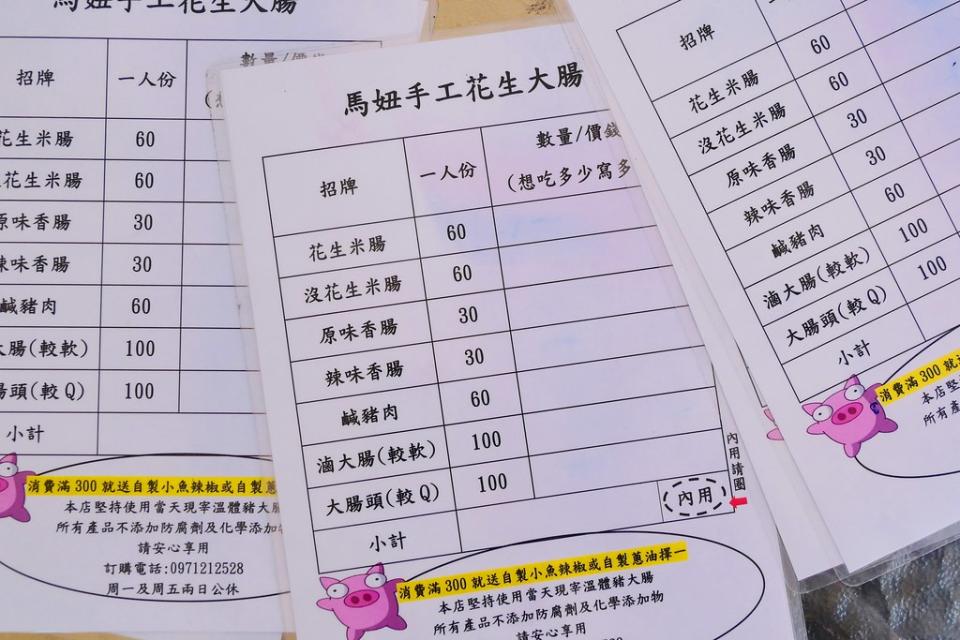 馬妞手工花生大腸
招牌 一人份
花生米腸 60
花生米腸 60
原味香腸 30
辣味香腸 30
鹹豬肉 60
大腸(較軟) 100
腸頭(較Q) 100
小計
消費滿300就送自製小魚辣椒或自製蔥
本店堅持使用當天現宰溫體豬大腸
所有產品不添加防腐劑及化學添加物
請安心享用
訂購電話:0971212528
周一及周五兩日公休
馬妞手工花生大腸
招牌 一人份 數量/價錢
(想吃多少寫多
花生米腸 60
沒花生米腸 60
原味香腸 30
辣味香腸 30
鹹豬肉 60
滷大腸(較軟) 100
大腸頭(較Q) 100
小計
內用
內用請圈
消費滿300就送自製小魚辣椒或自製蔥油擇一
本店堅持使用當天現宰溫體豬大腸
所有產品不添加防腐劑及化學添加物
請安心享用
招牌
花生米腸 60
沒花生米腸 60
原味香腸 30
辣味香腸 30
鹹豬肉 60
滷大腸(較軟) 100
大腸頭(較Q) 100
小計
消費滿300就送
本店堅
所有產